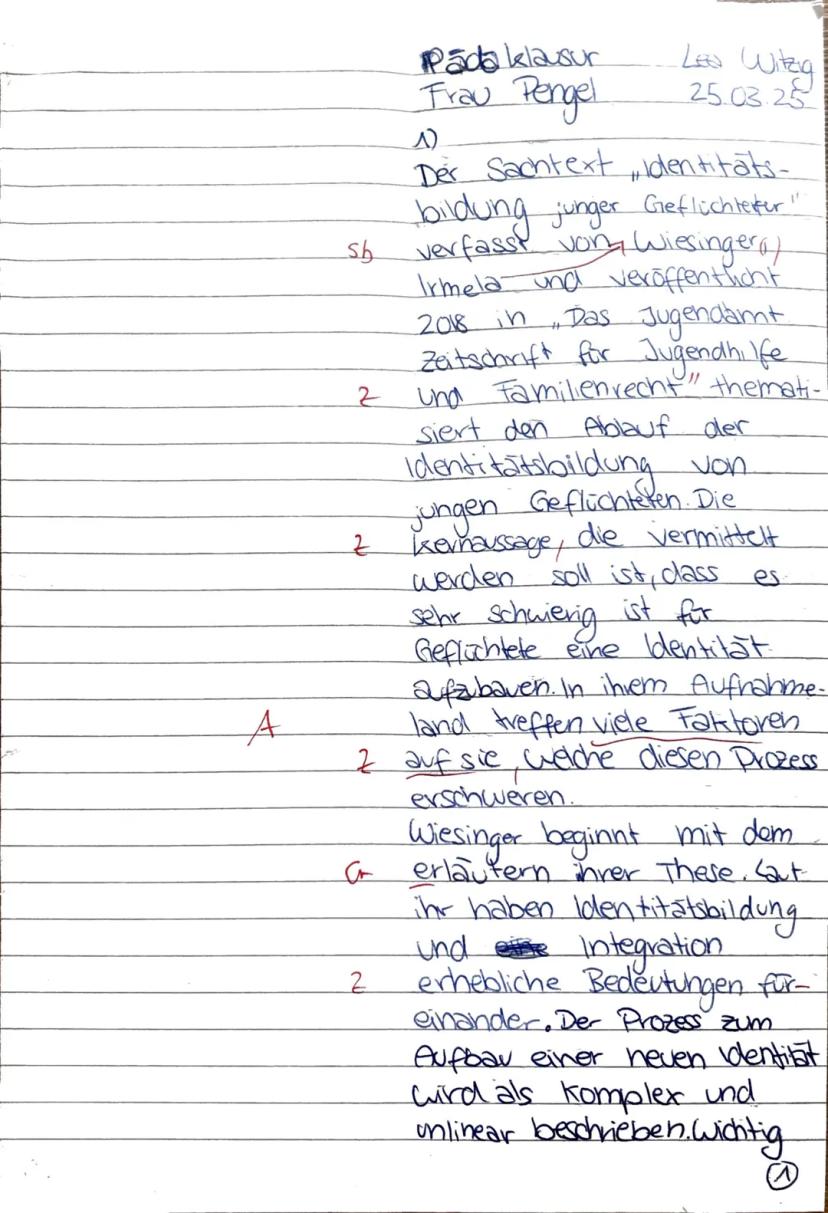 Pädaklausur Leo Witzig
Frau Pengel 25.03.25
1)
Der Sachtext „Identitäts-
bildung junger Geflüchteter"
Sb verfasst von Wiesinger,
Irmela und veröffentlicht
2018 in „Das Jugendamt
Zeitschrift für Jugendhilfe
Z und Familienrecht" themati-
siert den Ablauf der
Identitätsbildung von
jungen Geflüchteten. Die
Z Kernaussage, die vermittelt
werden soll ist, dass es
sehr schwierig ist für
Geflüchtete eine Identität
aufzubauen. In ihrem Aufnahme-
A land treffen viele Faktoren
Z auf sie, welche diesen Prozess
erschweren.
Wiesinger beginnt mit dem
Gr erläutern ihrer These. Laut
ihr haben Identitätsbildung
und Integration
Z erhebliche Bedeutungen für-
einander. Der Prozess zum
Aufbau einer neuen Identität
wird als Komplex und
unlinear beschrieben. Wichtig
1